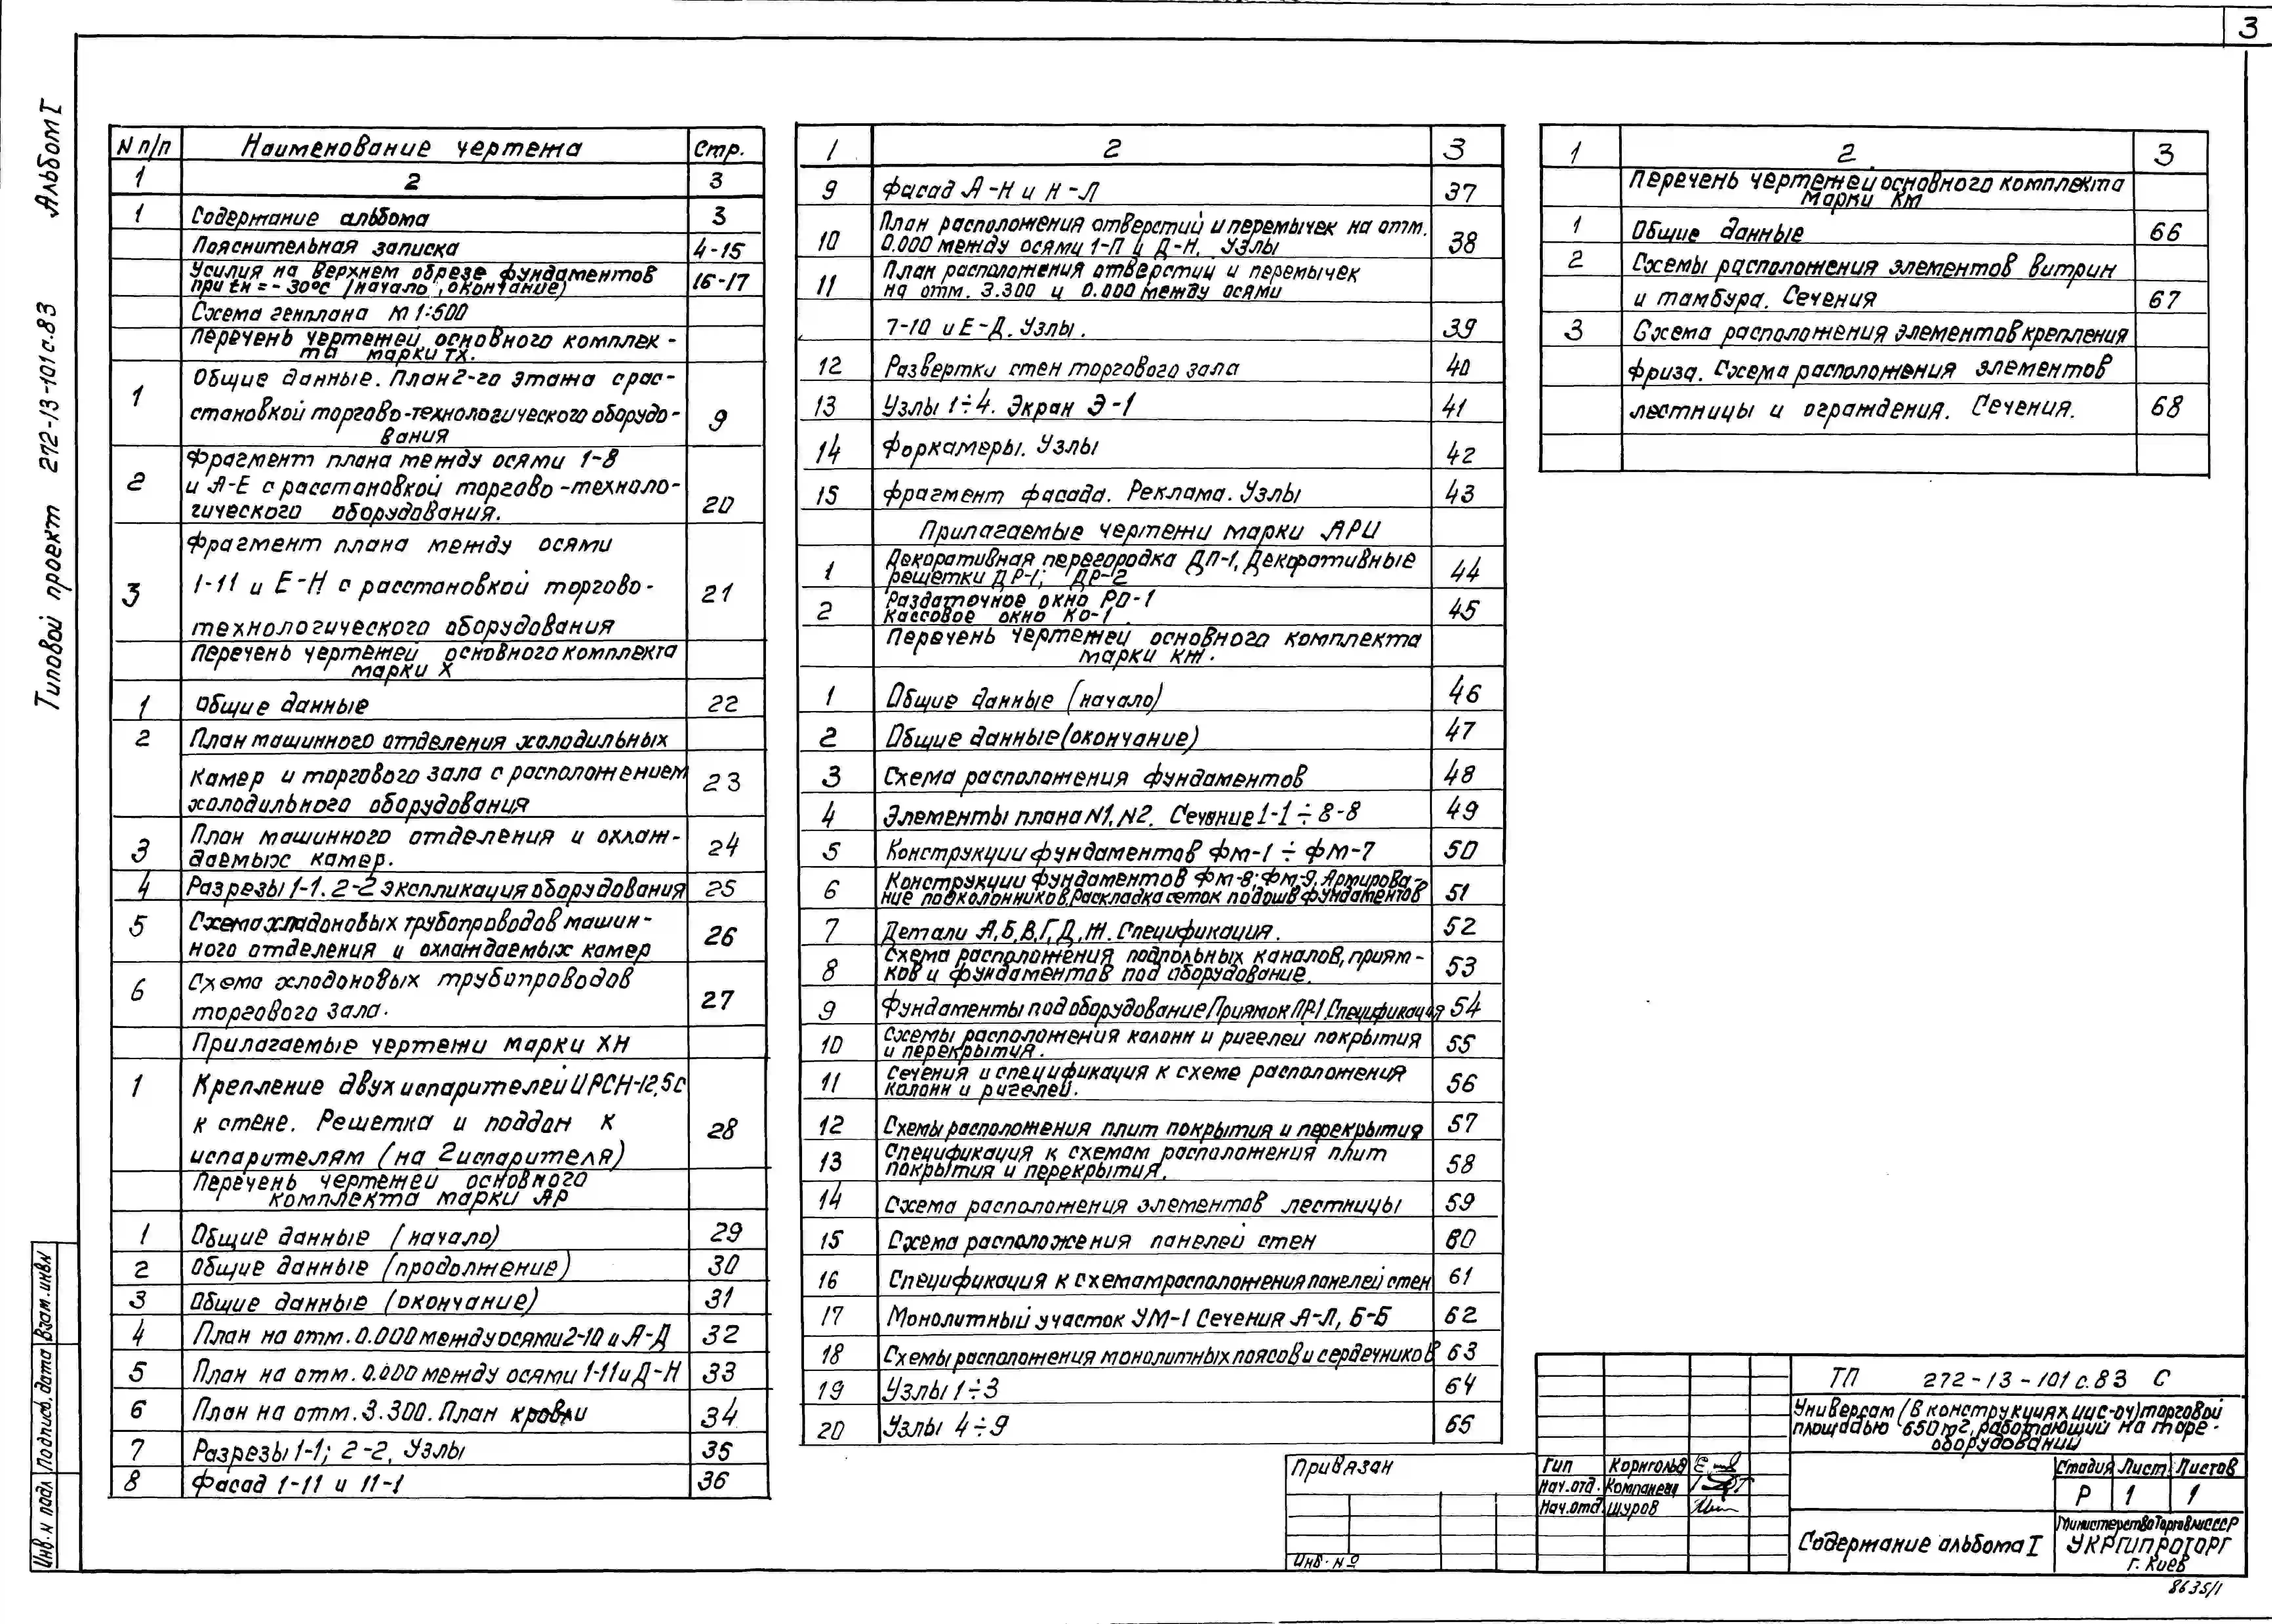 3
Альбом I
Типовой проект 272-13-101с.83
N п/п Наименование чертежа Стр.
1 2 3
1 Содержание альбома 3
Пояснительная записка 4-15
Усилия на верхнем обрезе фундаментов
при tн = -30°С (начало, окончание) 16-17
Схема генплана М 1:500
Перечень чертежей основного комплек-
та марки ТХ.
Общие данные. План 2-го этажа с рас-
1 становкой торгово-технологического оборудо- 9
вания
Фрагмент плана между осями 1-8
2 и А-Е с расстановкой торгово-техноло- 20
гического оборудования.
Фрагмент плана между осями
3 1-11 и Е-Н с расстановкой торгово- 21
технологического оборудования
Перечень чертежей основного комплекта
марки Х
1 Общие данные 22
2 План машинного отделения холодильных
камер и торгового зала с расположением 23
холодильного оборудования
3 План машинного отделения и охлаж- 24
даемых камер.
4 Разрезы 1-1. 2-2 экспликация оборудования 25
5 Схема хладоновых трубопроводов машин-
ного отделения и охлаждаемых камер 26
6 Схема хлодоновых трубопроводов
торгового зала. 27
Прилагаемые чертежи марки ХН
1 Крепление двух испарителей ИРСН-12,5с
к стене. Решетка и поддон к 28
испарителям (на 2 испарителя)
Перечень чертежей основного
комплекта марки АР
1 Общие данные (начало) 29
2 Общие данные (продолжение) 30
3 Общие данные (окончание) 31
4 План на отм. 0.000 между осями 2-10 и А-Д 32
5 План на отм. 0.000 между осями 1-11 и Д-Н 33
6 План на отм. 3.300. План кровли 34
7 Разрезы 1-1; 2-2, Узлы 35
8 Фасад 1-11 и 11-1 36
1 2 3
9 Фасад А-Н и Н-Л 37
План расположения отверстий и перемычек на отм.
10 0.000 между осями 1-П и Д-Н. Узлы 38
План расположения отверстий и перемычек
11 на отм. 3.300 и 0.000 между осями
7-10 и Е-Д. Узлы. 39
12 Развертки стен торгового зала 40
13 Узлы 1÷4. Экран Э-1 41
14 Форкамеры. Узлы 42
15 Фрагмент фасада. Реклама. Узлы 43
Прилагаемые чертежи марки АРИ
1 Декоративная перегородка ДП-1, Декоративные
решетки ДР-1; ДР-2 44
2 Раздаточное окно РО-1
Кассовое окно КО-1. 45
Перечень чертежей основного комплекта
марки КЖ.
1 Общие данные (начало) 46
2 Общие данные (окончание) 47
3 Схема расположения фундаментов 48
4 Элементы плана N1, N2. Сечение 1-1 ÷ 8-8 49
5 Конструкции фундаментов ФМ-1 ÷ ФМ-7 50
6 Конструкции фундаментов ФМ-8; ФМ-9. Армирова-
ние подколонников. Раскладка сеток подошв фундаментов 51
7 Детали А, Б, В, Г, Д, Ж. Спецификация. 52
8 Схема расположения подпольных каналов, приям-
ков и фундаментов под оборудование. 53
9 Фундаменты под оборудование Приямок ПР-1. Спецификация 54
10 Схемы расположения колонн и ригелей покрытия
и перекрытия. 55
11 Сечения и спецификация к схеме расположения
колонн и ригелей. 56
12 Схемы расположения плит покрытия и перекрытия 57
13 Спецификация к схемам расположения плит
покрытия и перекрытия. 58
14 Схема расположения элементов лестницы 59
15 Схема расположения панелей стен 60
16 Спецификация к схемам расположения панелей стен 61
17 Монолитный участок УМ-1 Сечения А-Л, Б-Б 62
18 Схемы расположения монолитных поясов и сердечников 63
19 Узлы 1÷3 64
20 Узлы 4÷9 65
1 2 3
Перечень чертежей основного комплекта
марки КМ
1 Общие данные 66
2 Схемы расположения элементов витрин
и тамбура. Сечения 67
3 Схема расположения элементов крепления
фриза. Схема расположения элементов
лестницы и ограждения. Сечения. 68
Взам. инв. N
Подпись, дата
Инв. N подл
Привязан
Инв. №
ТП 272-13-101 с.83 С
Универсам (В конструкциях ИИС-04) торговой
площадью 650 м2, работающий на таре-
оборудовании
Гип Корнгольд
Нач.отд. Компанеец
Нач.отд. Шуров
Стадия Лист Листов
Р 1 1
Содержание альбома I
Министерство Торговли СССР
УКРГИПРОТОРГ
г. Киев
8635/1